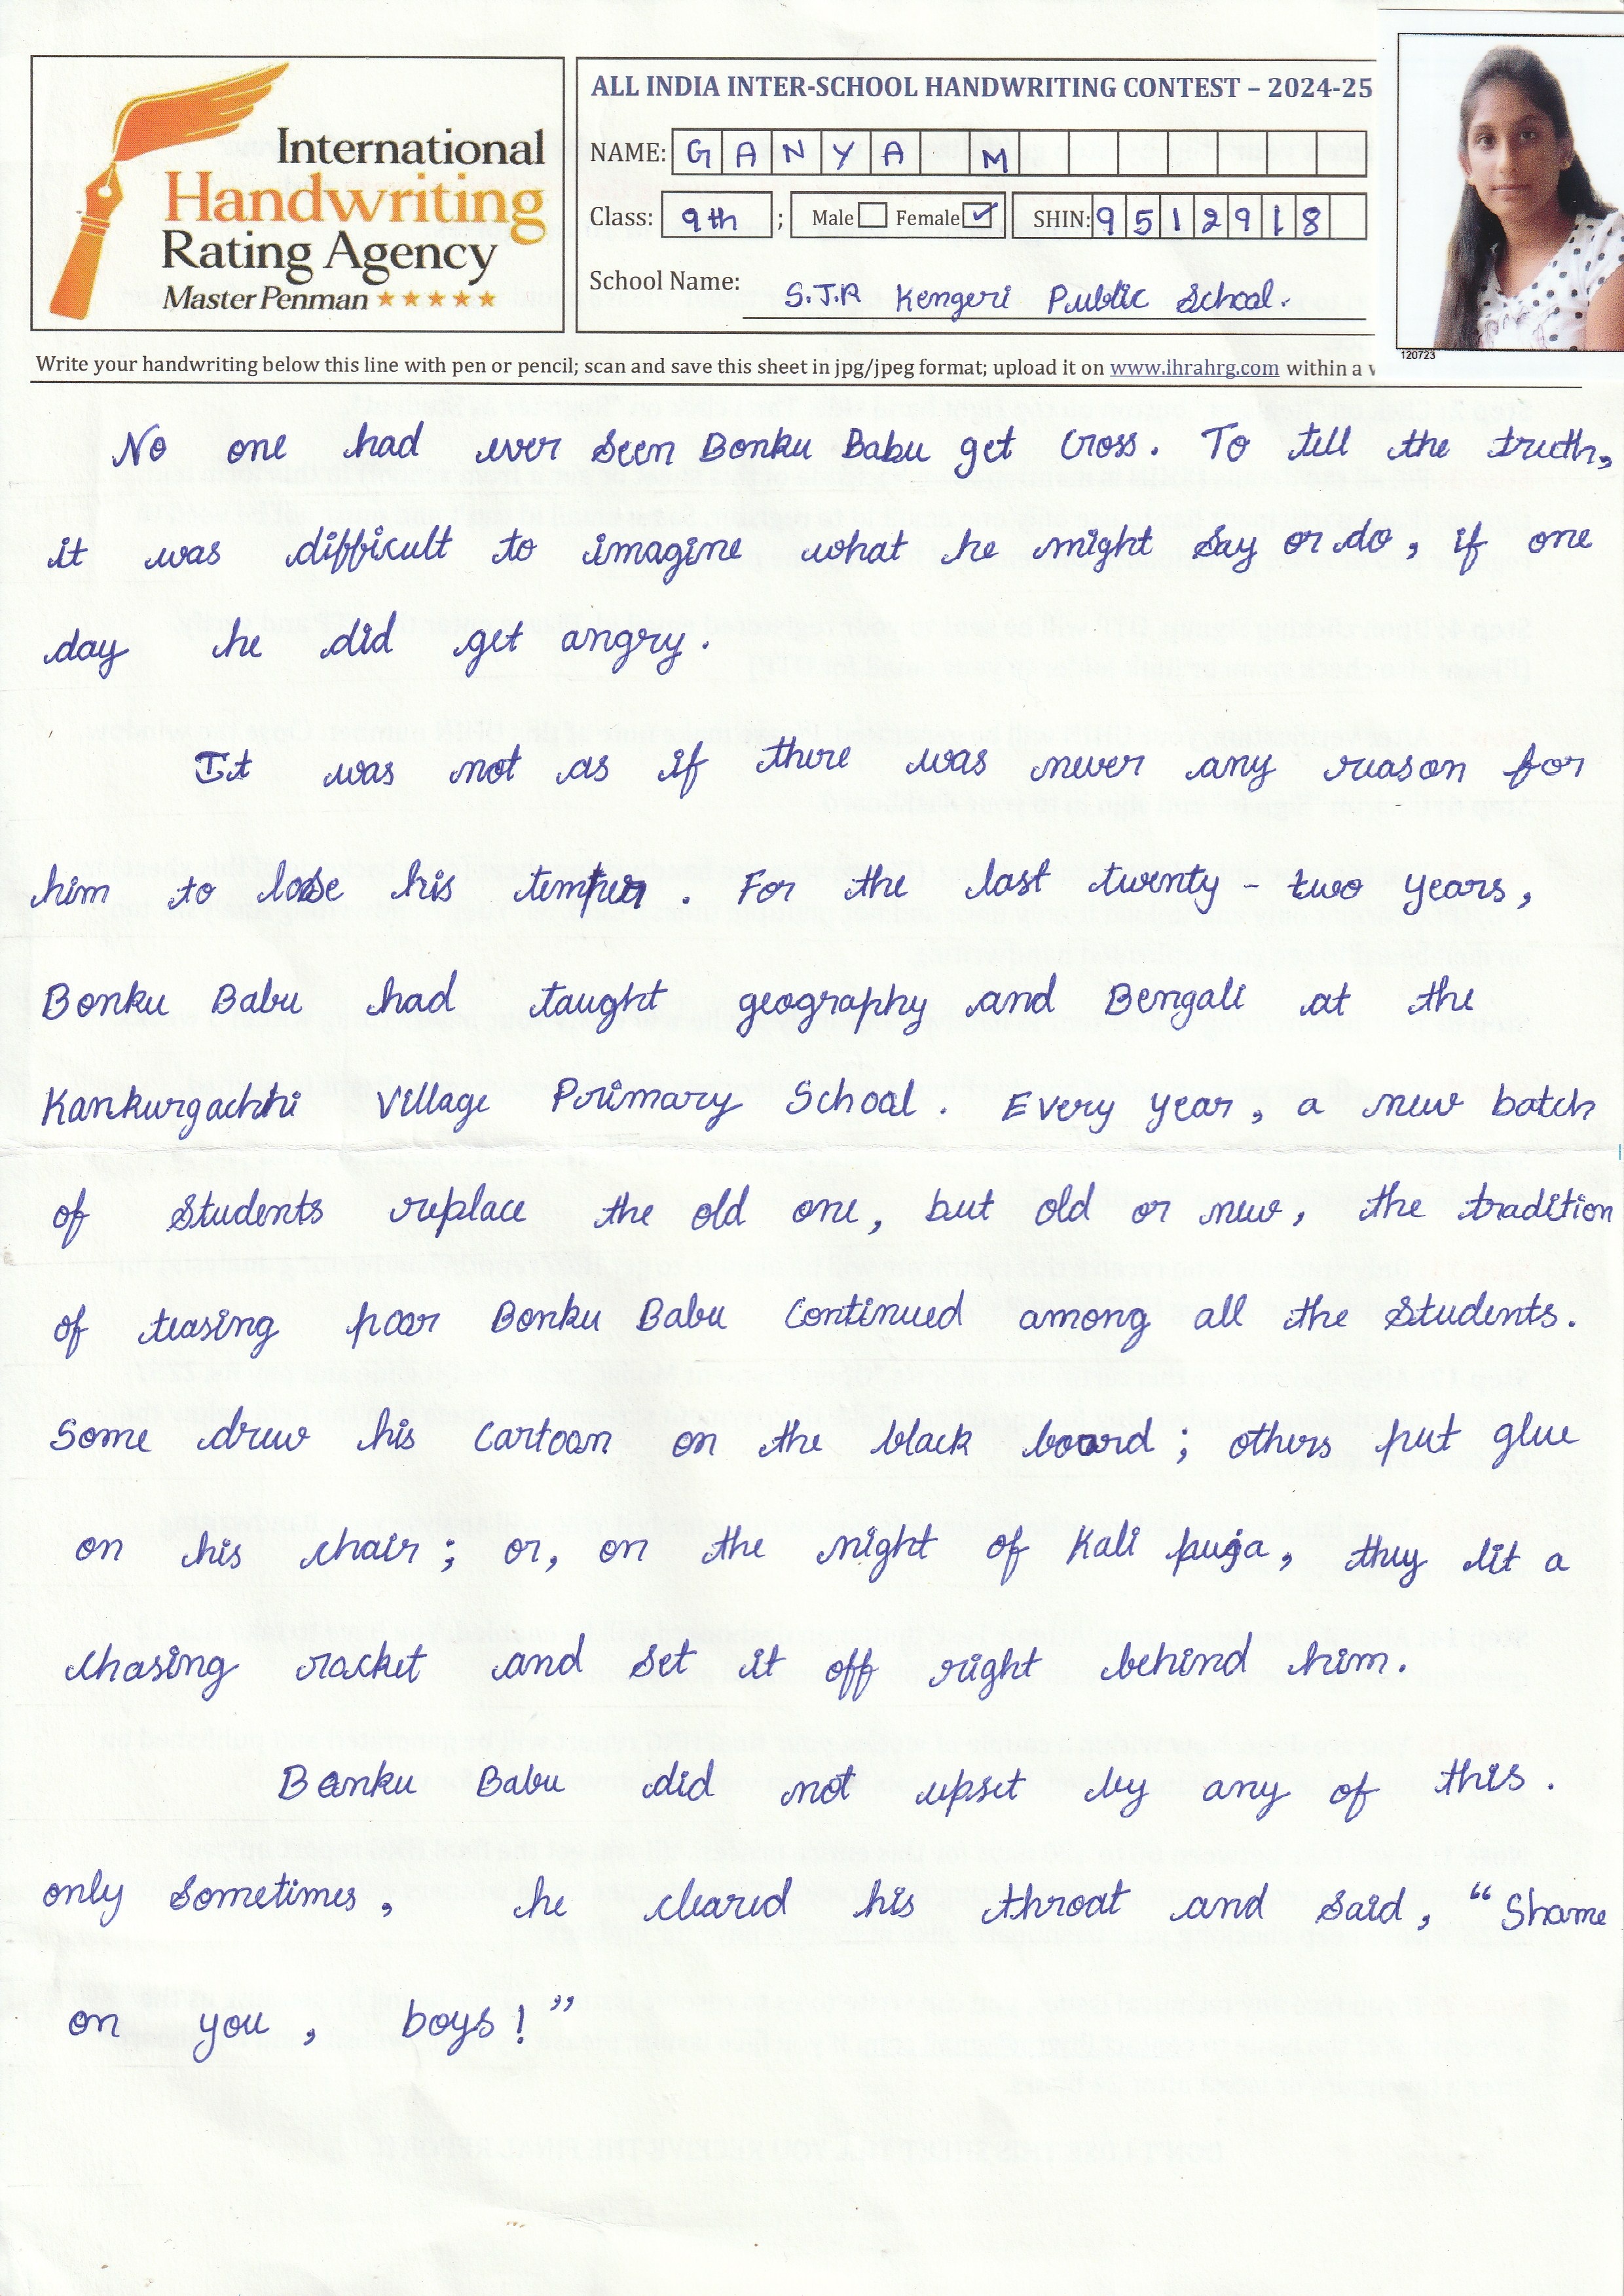 International
Handwriting
Rating Agency
Master Penman
ALL INDIA INTER-SCHOOL HANDWRITING CONTEST – 2024-25
NAME: GANYA M
Class: 9th ; Male Female ✓ SHIN: 9512918
School Name: S.J.R Kengeri Public School.
120723
Write your handwriting below this line with pen or pencil; scan and save this sheet in jpg/jpeg format; upload it on www.ihrahrg.com within a
No one had ever seen Bonku Babu get cross. To tell the truth,
it was difficult to imagine what he might say or do, if one
day he did get angry.
It was not as if there was never any reason for
him to lose his temper. For the last twenty - two years,
Bonku Babu had taught geography and Bengali at the
Kankurgachhi Village Primary School. Every year, a new batch
of students replace the old one, but old or new, the tradition
of teasing poor Bonku Babu continued among all the students.
Some drew his cartoon on the black board; others put glue
on his chair; or, on the night of Kali puja, they lit a
chasing rocket and set it off right behind him.
Bonku Babu did not upset by any of this.
only sometimes, he cleared his throat and said, “Shame
on you, boys!”